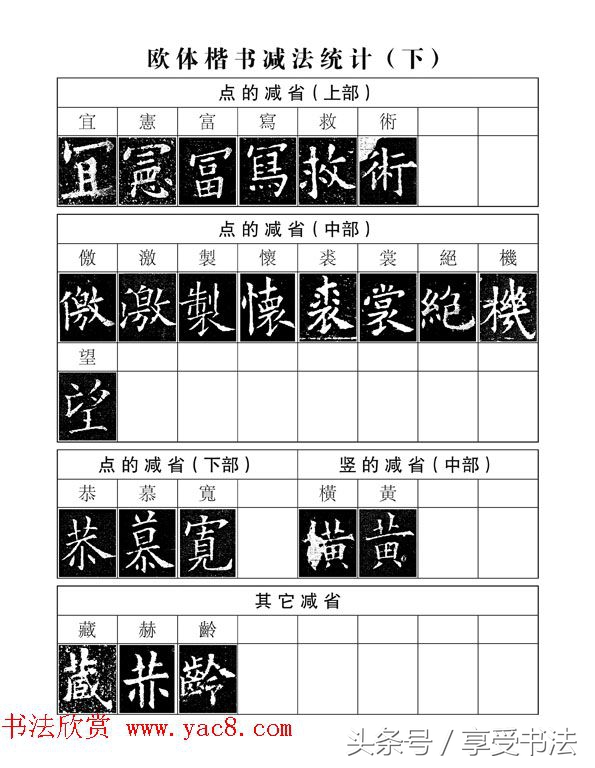 欧体楷书减法统计（下）
点的减省（上部）
宜 憲 富 寫 救 術
宜 憲 富 寫 救 術
点的减省（中部）
儌 激 製 懷 裘 裳 絕 機
儌 激 製 懷 裘 裳 絕 機
望
望
点的减省（下部） 竖的减省（中部）
恭 慕 寬 橫 黃
恭 慕 寬 橫 黃
其它减省
藏 赫 齡
藏 赫 齡
书法欣赏 www.yac8.com
头条号／享受书法